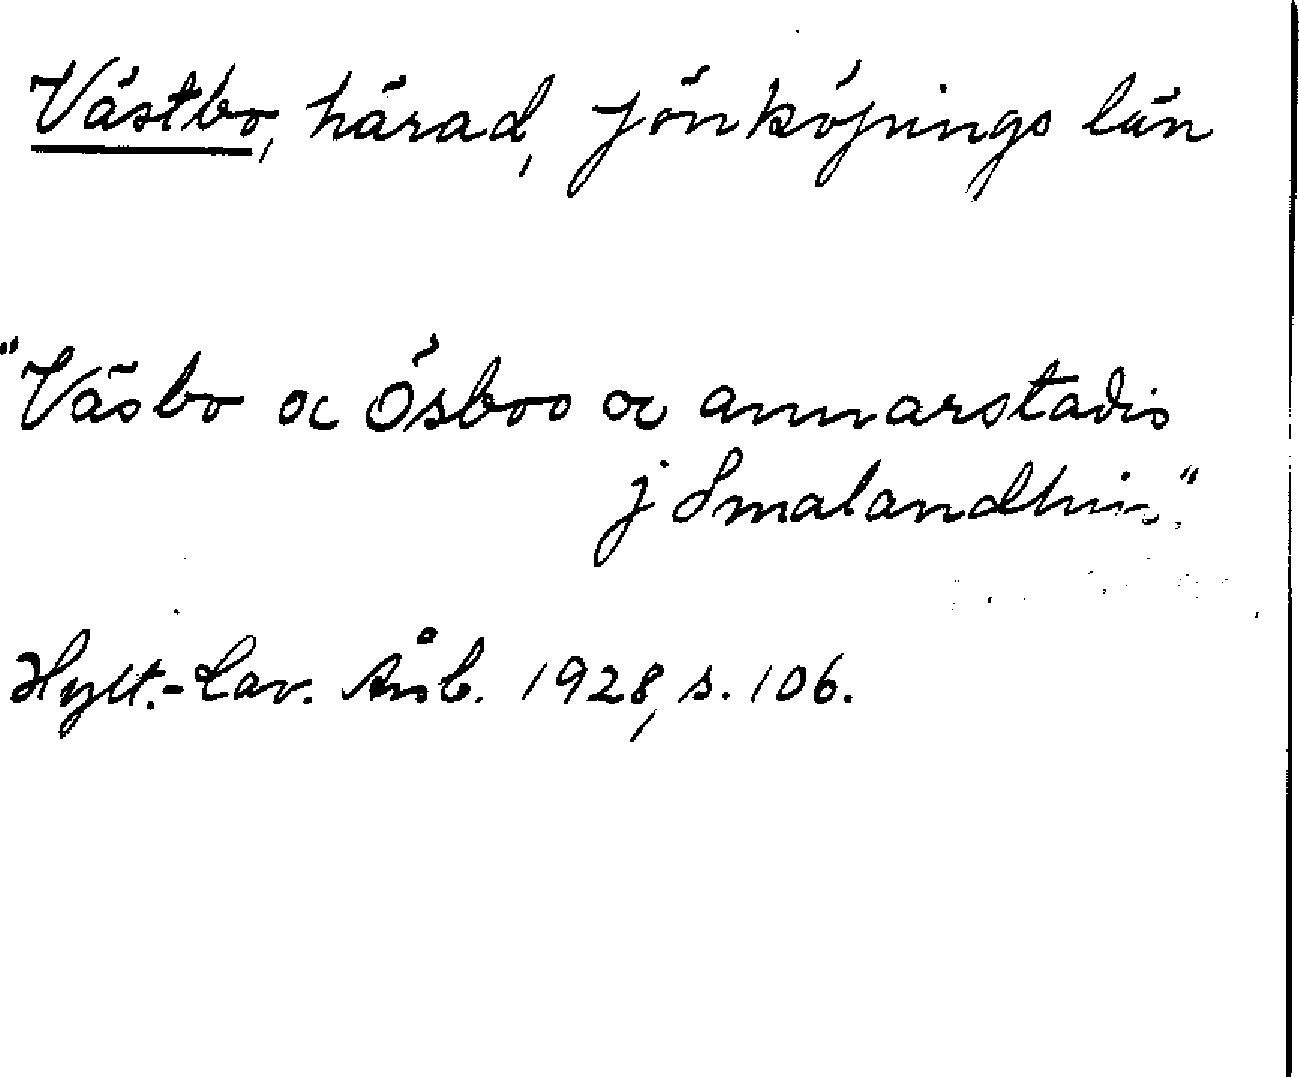 Västbo, härad, Jönköpings län
"Väsbo oc Ösboo oc annarstadis
j Smalandhm."
Hylt.-Cav. Årsb. 1928, s. 106.